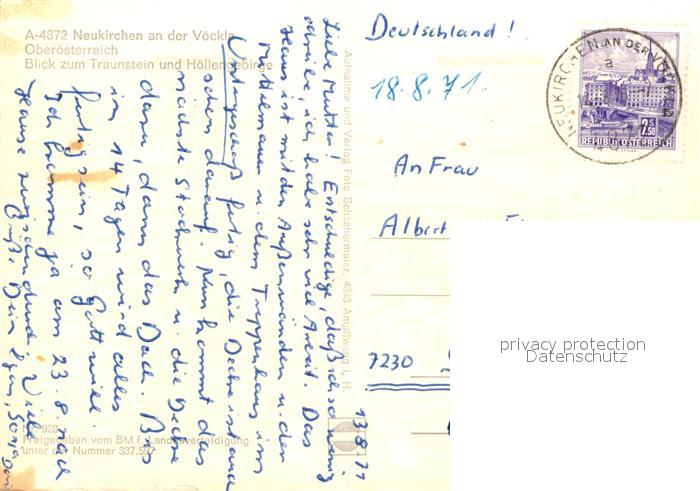 A-4872 Neukirchen an der Vöckla
Oberösterreich
Blick zum Traunstein und Höllengebirge
Liebe Mutter! Entschuldige, daß ich so wenig
schreibe, ich habe sehr viel Arbeit. Das
Haus ist mit den Außenwänden u. den
Mittelmauern u. dem Treppenhaus im
Untergeschoß fertig, die Decke ist auch
schon darauf. Nun kommt das
nächste Stockwerk u. die Decke
dazu, dann das Dach. Bis
in 14 Tagen wird alles
fertig sein, so Gott will.
Ich komme ja am 23.8. nach
Hause zurück. Viele
Grüße Dein Egon, Sonja
Dori
13.8.71
Aufnahme und Verlag Foto Schachermaier, 4843 Ampflwang i. H.
928
Freigegeben vom BM f. Landesverteidigung
unter der Nummer 337.597
Deutschland!
18.8.71.
NEUKIRCHEN AN DER VÖCKLA
a
2S
7.50
REPUBLIK ÖSTERREICH
An Frau
Albert
7230
privacy protection
Datenschutz